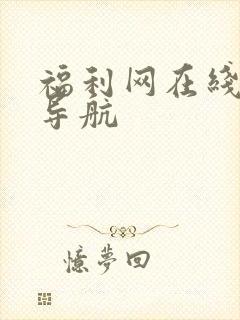 福利网在綫
导航
憶夢回